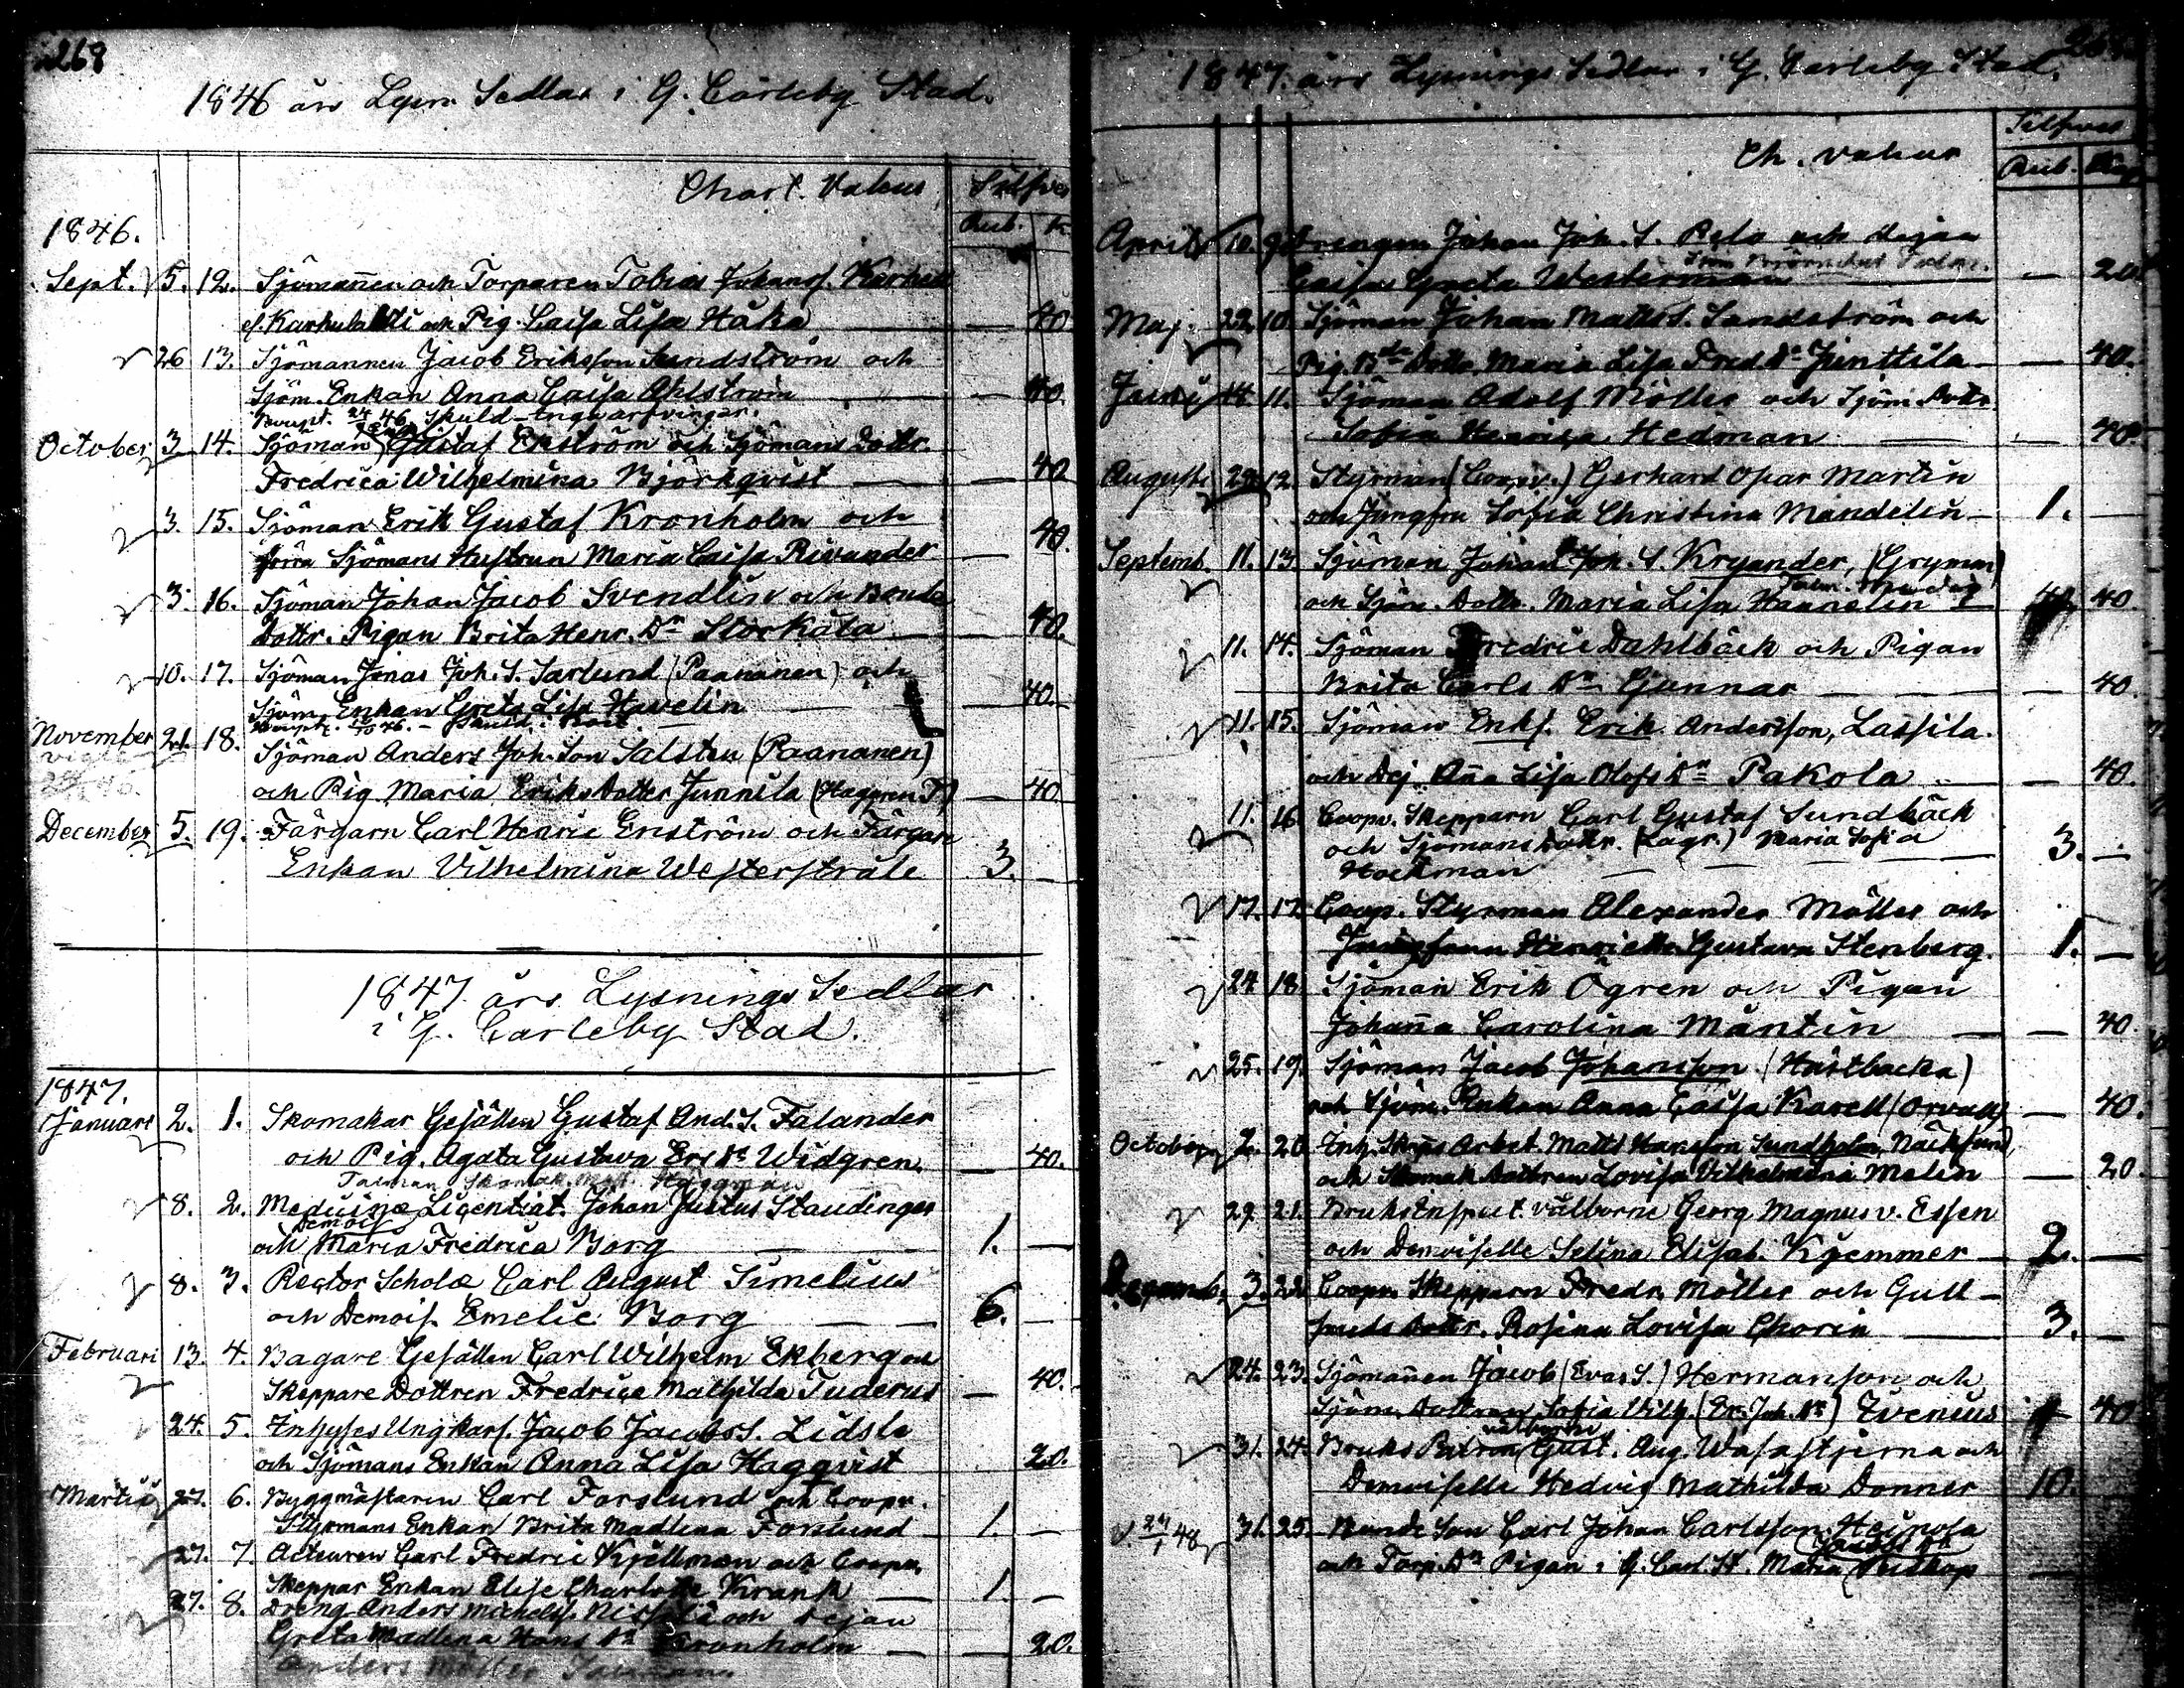 268
1846 års Lysn. Sedlar i G. Carleby Stad.
Chart. Valeur Silfver
Rub. K.
1846.
Sept. 5. 12. Sjömannen och Torparen Tobias Johanss.
och Pig. Caisa Lisa Håka — 40
26 13. Sjömannen Jacob Eriksson Sundström och
Sjöm. Enkan Anna Caisa Ahlström — 40.
October 3. 14. Sjöman Gustaf Enström och Sjömans Dottr.
Fredrica Wilhelmina Björkqvist — 40
3. 15. Sjöman Erik Gustaf Kronholm och
förra Sjömans Hustrun Maria Caisa Rivander — 40.
3. 16. Sjöman Johan Jacob Svendlin och Bonde
Dottr. Pigan Brita Henr. Dr Storkåla — 40.
10. 17. Sjöman Jonas Joh. S. Sarlund (Paananen) och
Sjöm. Enkan Greta Lisa Havelin — 40.
November 21. 18.
Sjöman Anders Joh. Son Salsten (Paananen)
och Pig. Maria Eriks Dotter Junnila — 40.
December 5. 19. Färgarn Carl Henric Enström och Färgare
Enkan Vilhelmina Westerstråle 3. —
1847 års Lysnings Sedlar
i G. Carleby Stad.
1847.
Januari 2. 1. Skomakar Gesällen Gustaf And. S. Falander
och Pig. Agata Gustava Er. Dr Widgren. — 40.
8. 2. Medicinæ Licentiat. Johan Justus Staudinger
Demois.
och Maria Fredrica Borg 1. —
8. 3. Rector Scholæ Carl August Simelius
och Demois. Emelie Borg 6. —
Februari 13. 4. Bagare Gesällen Carl Wilhelm Ekberg och
Skeppare Dottren Fredrica Mathilda Tuderus — 40.
24. 5. Inhyses Ungkarl. Jacob Jacobs S. Lidsle
och Sjömans Enkan Anna Lisa Haggqvist 20.
Martii 27. 6. Byggmästaren Carl Forslund och Coopv.
Styrmans Enkan Brita Madlena Forslund 1. —
27. 7. Acteuren Carl Fredric Kjellman och Coopv.
Skeppar Enkan Elise Charlotte Krank 1. —
27. 8. Dreng Anders Michelss. och Dejan
Greta Madlena Hans Dr Kronholm — 20.
Anders Möller
1847 års Lysnings Sedlar i G. Carleby Stad.
Ch. Valeur Silfver
Rub. Kop
April 10. 9. Drengen Johan Joh. S. Pelo och Dejan
Caisa Greta Westerman — 20.
Maj 22. 10. Sjöman Johan Matts S. Sandström och
Pig. Bde Dottr. Maria Lisa Fred. Dr Junttila — 40.
Junii 11. Sjöman Adolf Möller och Sjöm. Dottr.
Sofia Hedman — 40.
August. 29. 12. Styrman (Coopv.) Gerhard Martin
och Jungfru Sofia Christina Mandelin 1. —
Septemb. 11. 13. Sjöman Johan Joh. S. Kryander,
och Sjöm. Dottr. Maria Lisa 40.
11. 14. Sjöman Fredric Dahlbäck och Pigan
Brita Carls Dr Gunnar — 40.
11. 15. Sjöman Enkl. Erik Andersson, Lassila
och Dej. Anna Lisa Olofs Dr Pakola — 40.
11. 16 Coopv. Skepparn Carl Gustaf Sundbäck
och Sjömans Dottr. Maria Sofia
Hockman 3. —
17. 17. Coop. Styrman Alexander Möller och
Jungfrun Henrietta Gustava Stenberg. 1. —
24. 18. Sjöman Erik Ögren och Pigan
Johanna Carolina Mäntin — 40.
25. 19. Sjöman Jacob Johansson (Hästbacka)
och Sjöm. Enkan Anna Caisa Karell — 40.
October 2. 20. Inh. Arbet. Matts Hansson Sundholm,
och Skomak. Dottren Lovisa Vilhelmina Melin — 20.
29. 21. Bruks Inspect. Välborne Georg Magnus v. Essen
och Demoiselle Selina Elisab. Kyemmer 2. —
Decemb. 3. 22. Coopv. Skepparn Fredr. Möller och Gull-
smeds Dottr. Rosina Lovisa Chorin 3. —
24. 23. Sjömannen Jacob (Evas S.) Hermanson och
Sjöm. Dottren Sofia Vilh. (Er. Joh. Dr) Evenius 40
välborne
31. 24. Bruks Patron Gust. Aug. Wasastjerna och
Demoiselle Hedvig Mathilda Donner 10.
31. 25. Bonde Son Carl Johan Carlsson Heinola
Jacobs Dr
och Torp. Dr Pigan i G. Carl. St. Maria